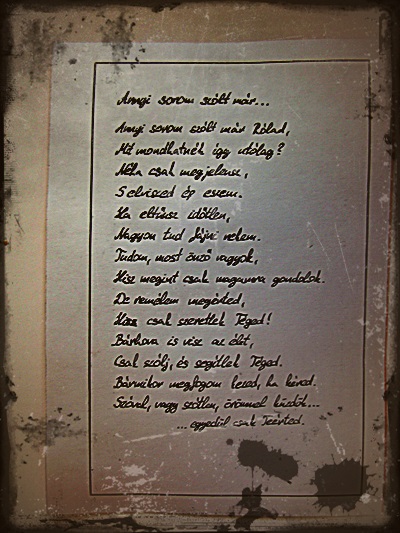 Annyi sorom szólt már...
Annyi sorom szólt már Rólad,
Mit mondhatnék így utólag?
Néha csak megjelensz,
S elviszed ép eszem.
Ha eltűnsz időtlen,
Nagyon tud fájni nekem.
Tudom, most önző vagyok,
Hisz megint csak magamra gondolok.
De remélem megérted,
csak szeretlek Téged!
Bárhova is visz az élet,
Csak szólj, és segítlek Téged.
Bármikor megfogom kezed, ha kéred.
Szóval, vagy szótlan, örömmel küzdök...
...egyedül csak Teérted.